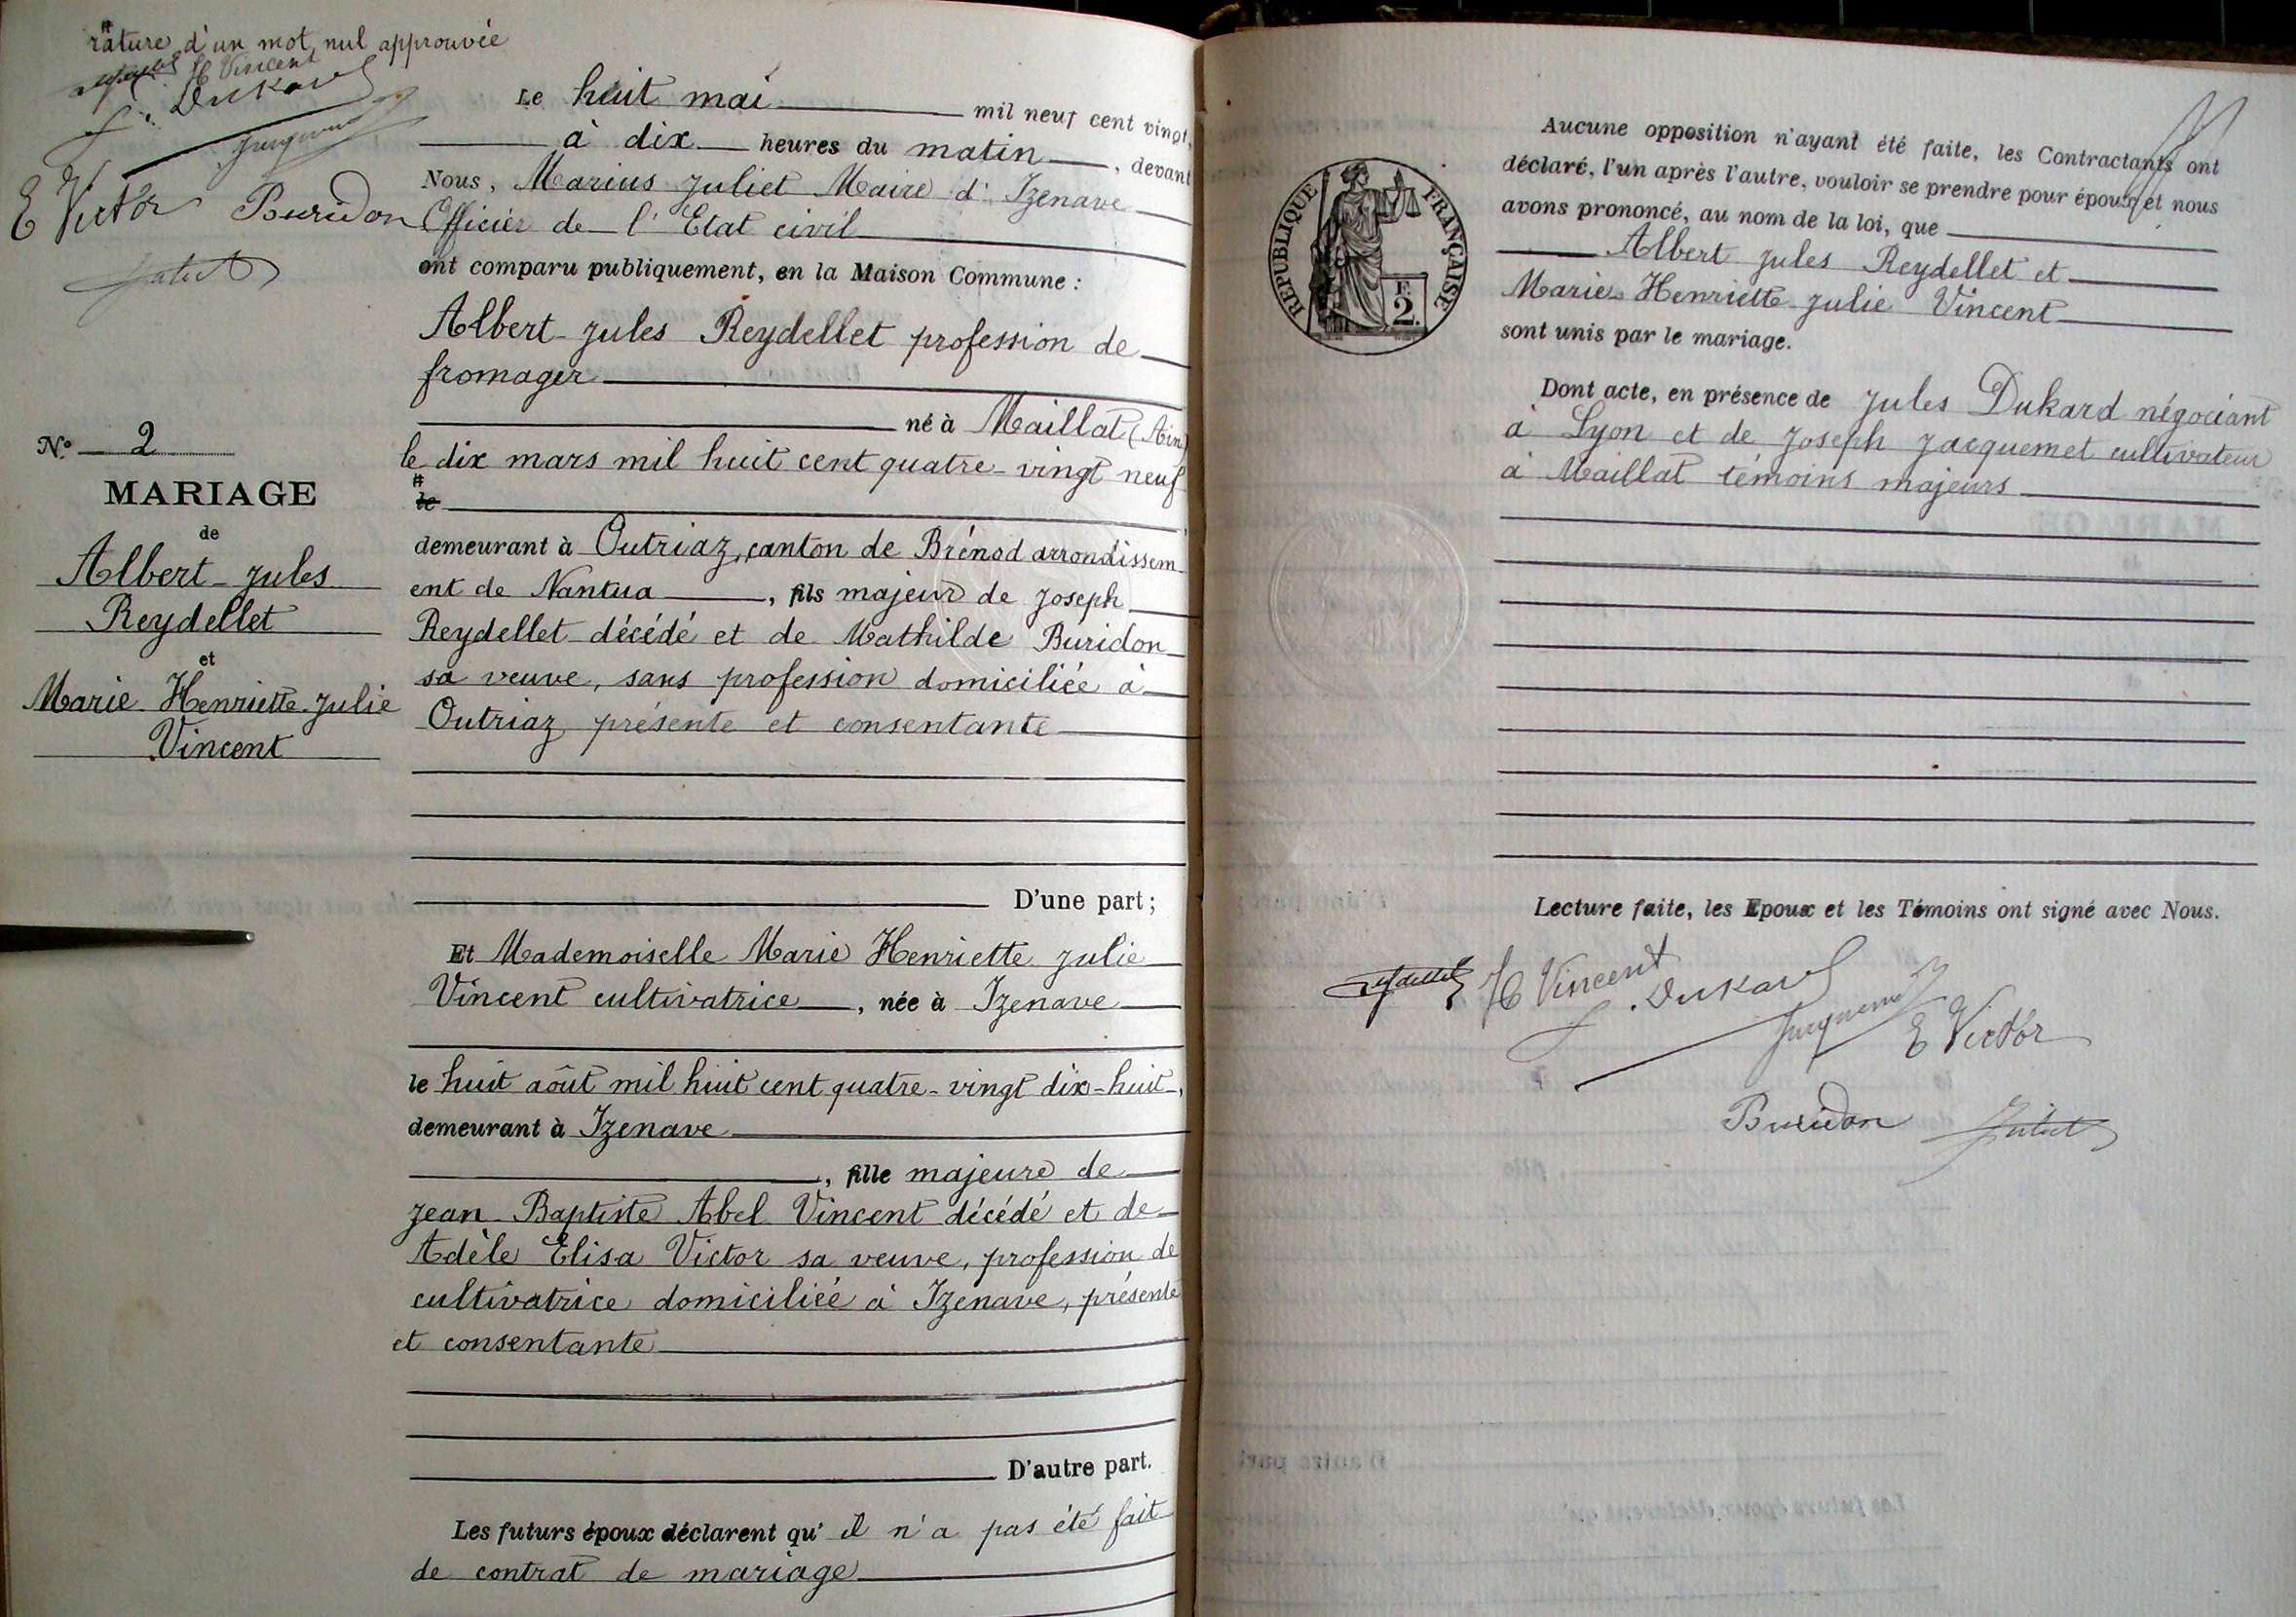 # rature d'un mot nul approuvée
H Vincent
J. Dukard
Jacquemet
E Victor Buridon
Juliet
N° 2
MARIAGE
de
Albert-Jules
Reydellet
et
Marie-Henriette-Julie
Vincent
Le huit mai mil neuf cent vingt,
à dix heures du matin, devant
Nous, Marius Juliet Maire d'Izenave
Officier de l'Etat civil
ont comparu publiquement, en la Maison Commune :
Albert-Jules Reydellet profession de
fromager
né à Maillat (Ain)
le dix mars mil huit cent quatre-vingt neuf
# le
demeurant à Outriaz, canton de Brénod arrondissem-
ent de Nantua, fils majeur de Joseph
Reydellet décédé et de Mathilde Buridon
sa veuve, sans profession domiciliée à
Outriaz présente et consentante
D'une part ;
Et Mademoiselle Marie Henriette Julie
Vincent cultivatrice, née à Izenave
le huit août mil huit cent quatre-vingt dix-huit,
demeurant à Izenave
, fille majeure de
Jean-Baptiste Abel Vincent décédé et de
Adèle Elisa Victor sa veuve, profession de
cultivatrice domiciliée à Izenave, présente
et consentante
D'autre part.
Les futurs époux déclarent qu'il n'a pas été fait
de contrat de mariage
RÉPUBLIQUE FRANÇAISE
F.
2.
Aucune opposition n'ayant été faite, les Contractants ont
déclaré, l'un après l'autre, vouloir se prendre pour époux et nous
avons prononcé, au nom de la loi, que
Albert Jules Reydellet et
Marie-Henriette-Julie Vincent
sont unis par le mariage.
Dont acte, en présence de Jules Dukard négociant
à Lyon et de Joseph Jacquemet cultivateur
à Maillat témoins majeurs
Lecture faite, les Epoux et les Témoins ont signé avec Nous.
Reydellet H Vincent
J. Dukard
Jacquemet
E Victor
Buridon Juliet